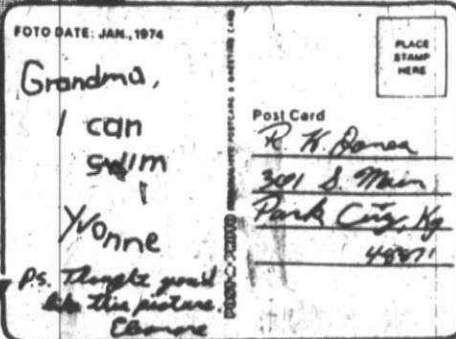 FOTO DATE: JAN., 1974
Grandma,
I can
swim
!
Yvonne
PS. Thought you'd
like this picture.
Eleanore
PLACE
STAMP
HERE
Post Card
R. K. Jones
301 S. Main
Park City, Ky